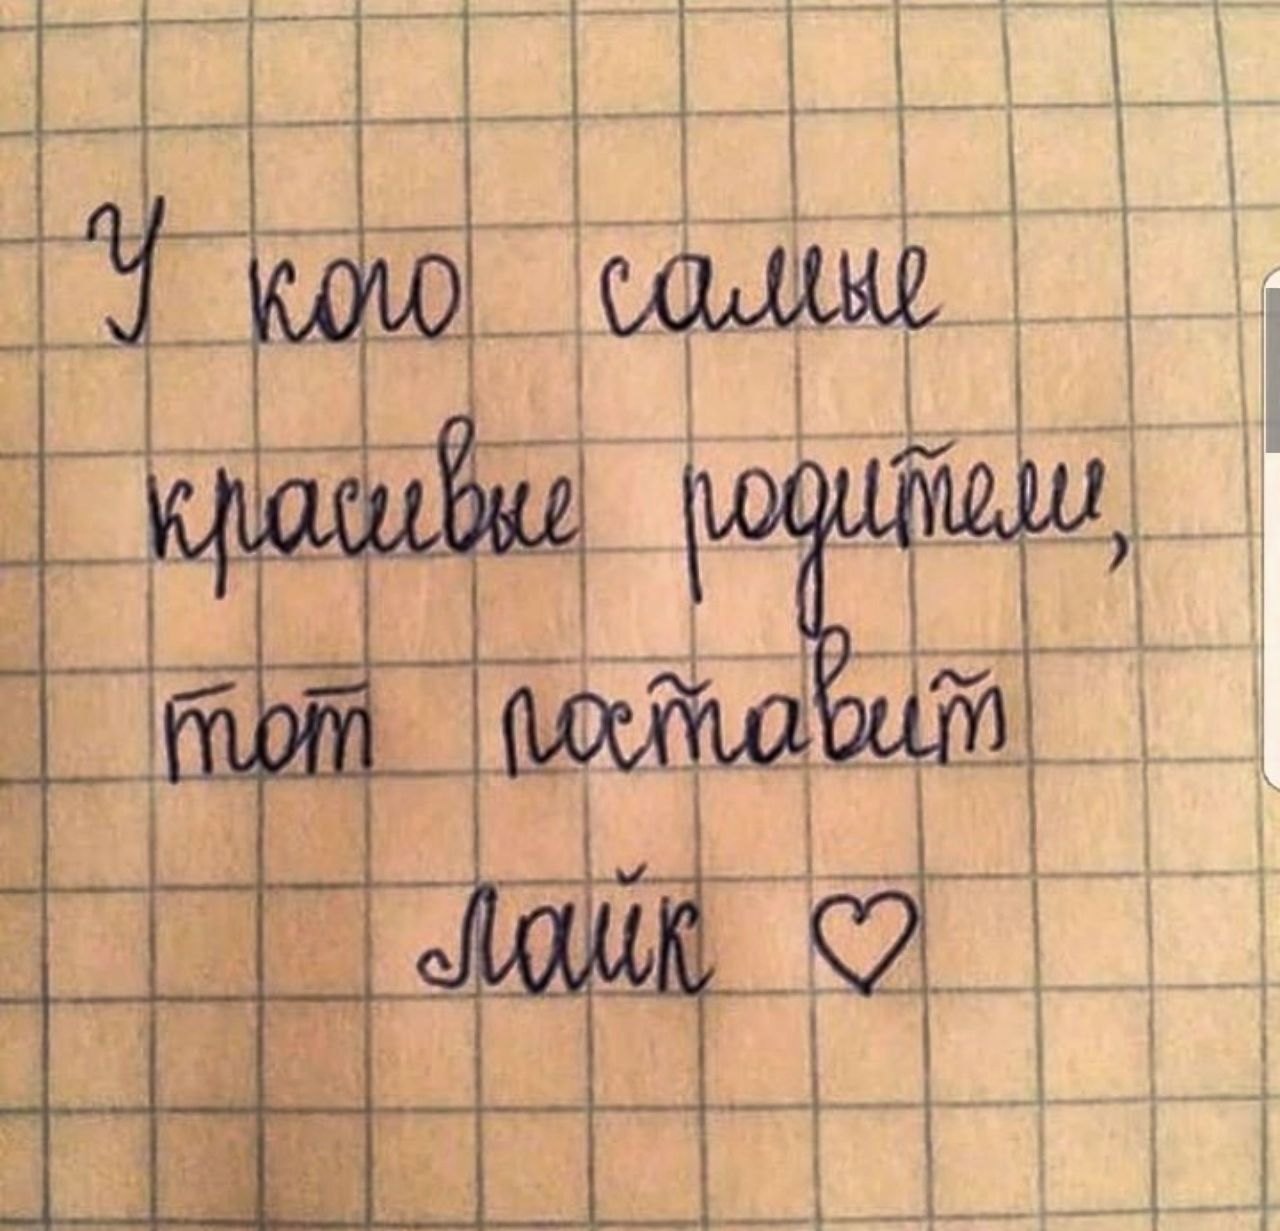 У кого самые
красивые родители,
тот поставит
лайк ♡